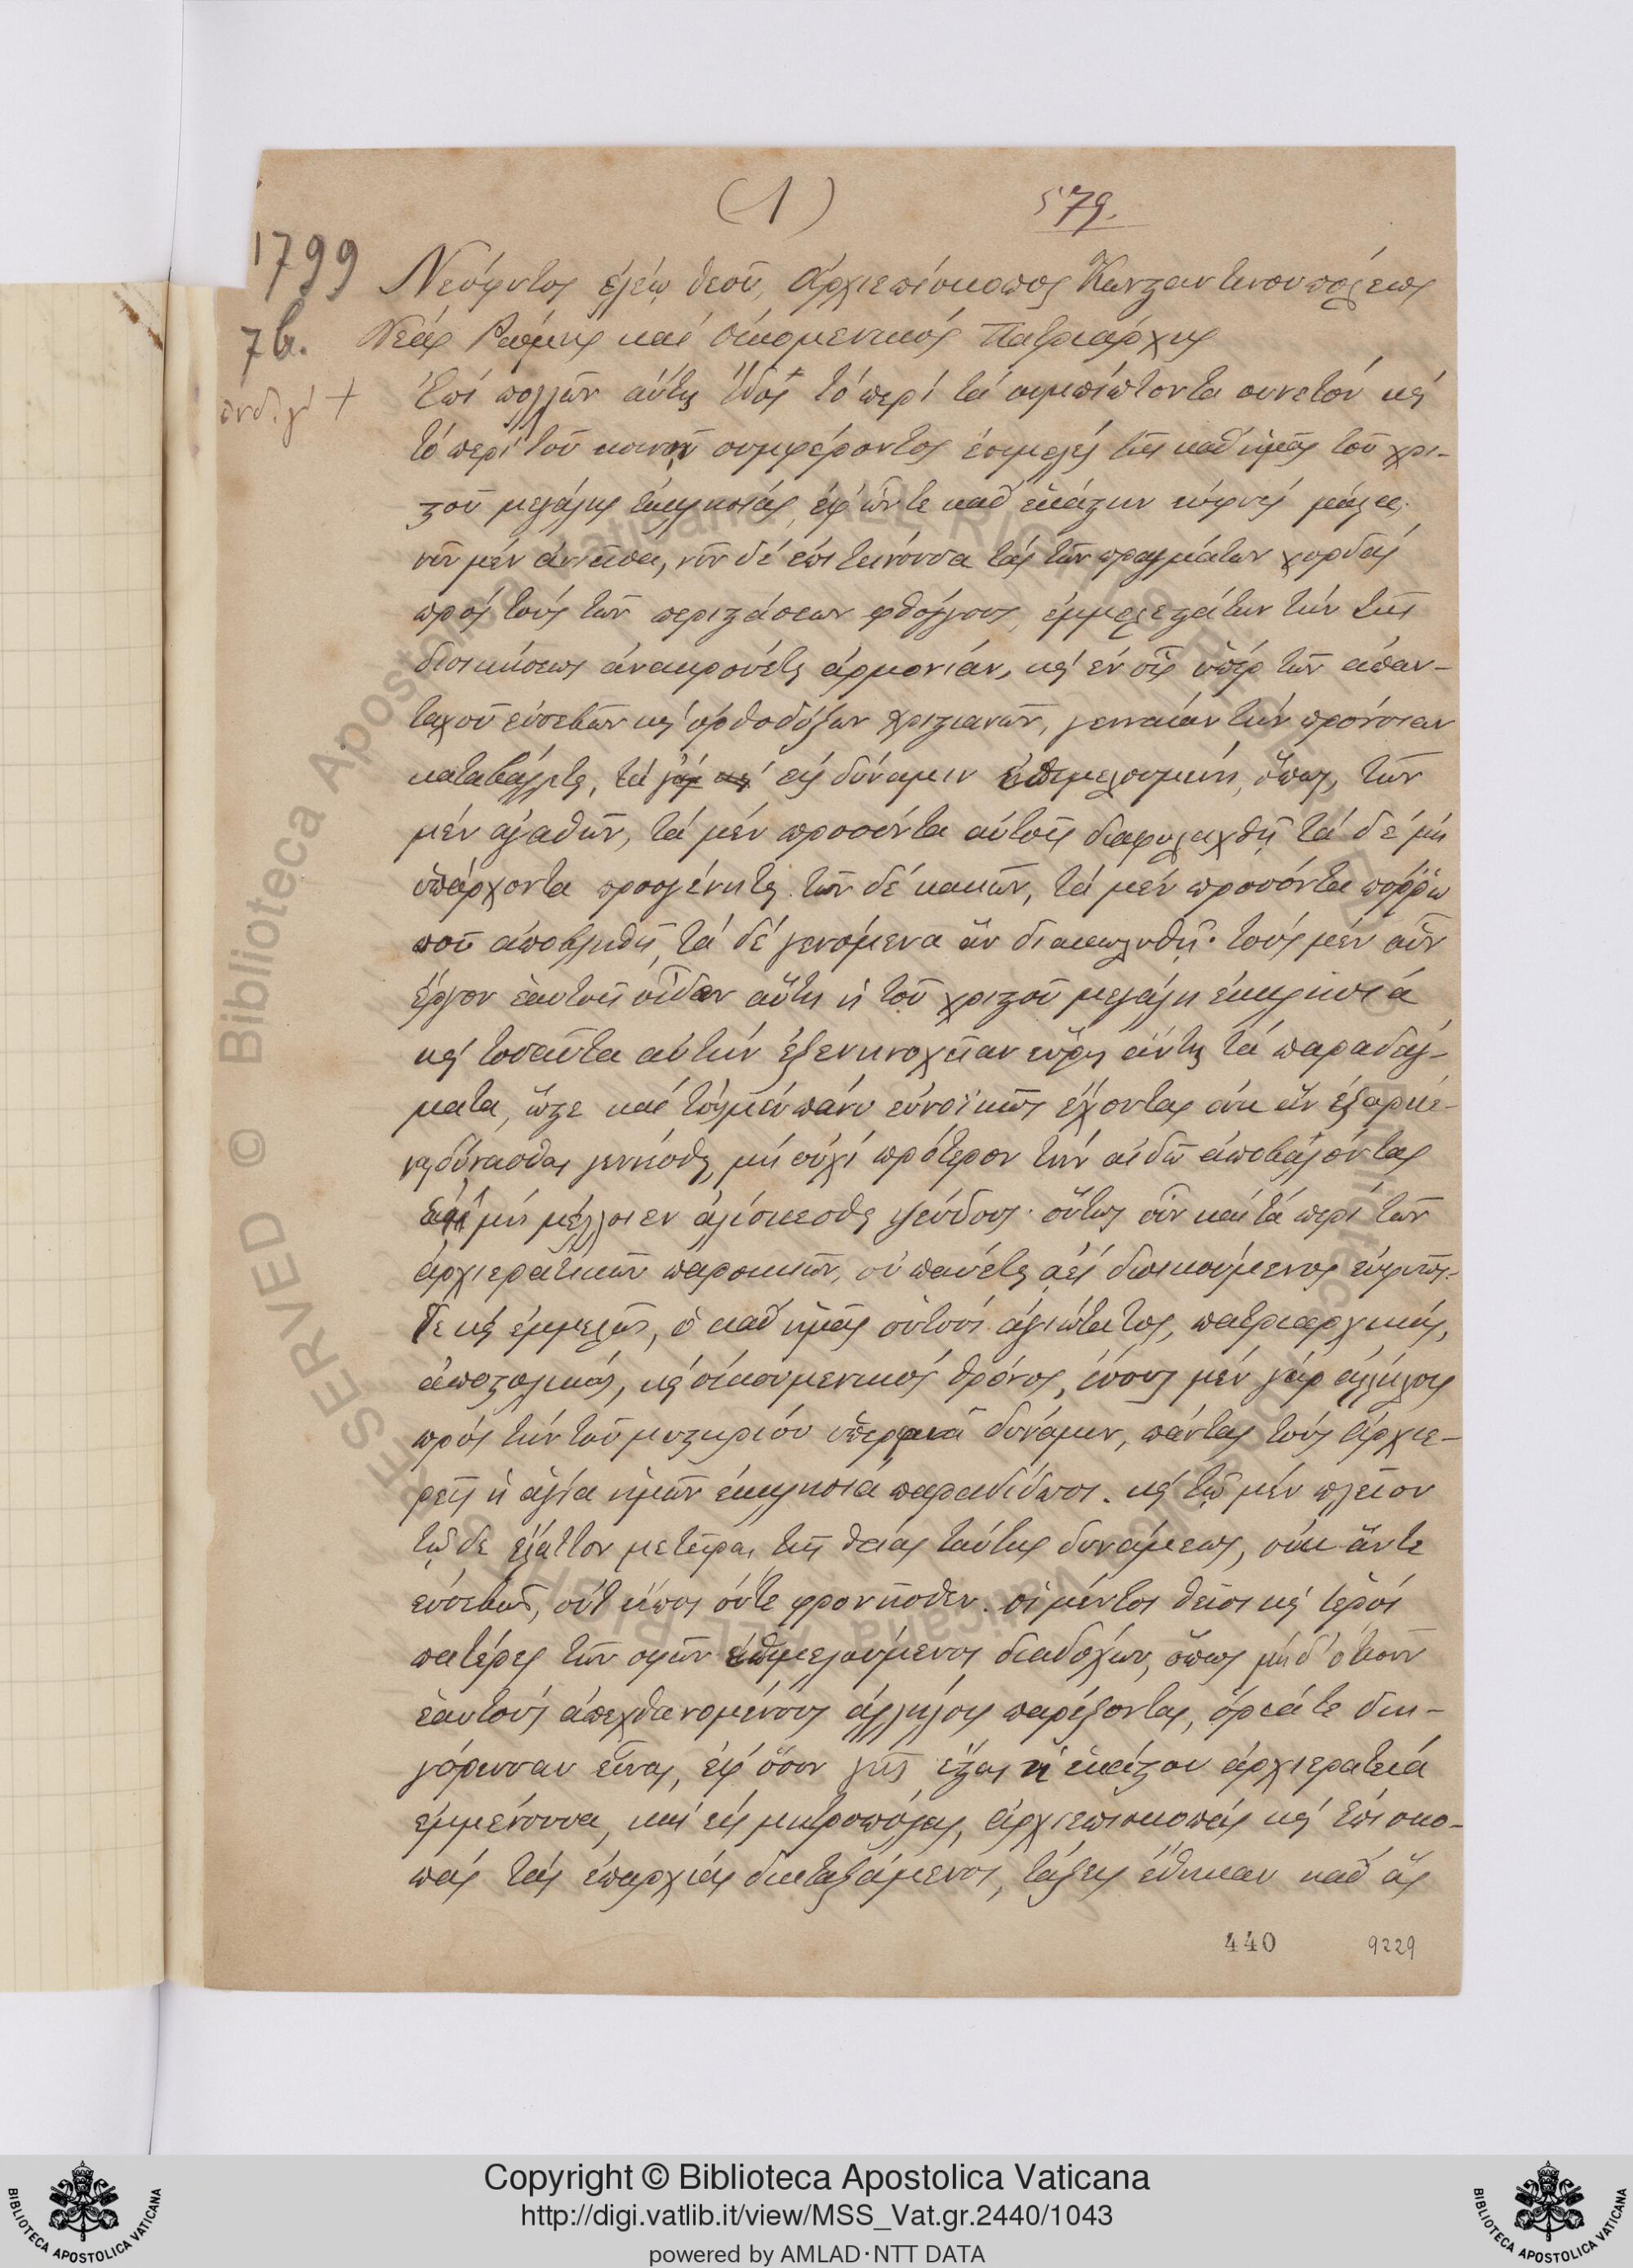 (1) 579.
1799
7b.
ινδ. γ' +
Νεόφυτος ἐλέῳ θεοῦ, Ἀρχιεπίσκοπος Κωνσταντινουπόλεως
Νέας Ῥώμης καὶ Οἰκουμενικὸς Πατριάρχης
Ἐπὶ πολλῶν αὕτη τὸ περὶ τὰ συμπίπτοντα συνετὸν καὶ
τὸ περὶ τοῦ κοινοῦ συμφέροντος ἐπιμελὲς τῆς καθ' ἡμᾶς τοῦ χρι-
στοῦ μεγάλης ἐκκλησίας, ἐφ' ὧν τε καθ' ἑκάστην εὐφυὲς μάλα,
νῦν μὲν ἀνιεῖσα, νῦν δὲ ἐπιτείνουσα τὰς τῶν πραγμάτων χορδὰς
πρὸς τοὺς τῶν περιστάσεων φθόγγους, ἐμμελεστάτην τὴν τῆς
διοικήσεως ἀνακρούεται ἁρμονίαν, καὶ ἐν οἷς ὑπὲρ τῶν ἁπαν-
ταχοῦ εὐσεβῶν καὶ ὀρθοδόξων χριστιανῶν, γενναίαν τὴν πρόνοιαν
καταβάλλεται, τὰ εἰς δύναμιν ἐπιμελουμένη, ὅπως, τῶν
μὲν ἀγαθῶν, τὰ μὲν προσόντα αὐτοῖς διαφυλαχθῇ τὰ δὲ μὴ
ὑπάρχοντα προσγένηται. τῶν δὲ κακῶν, τὰ μὲν προσόντα πόῤῥω
που ἀποβληθῇ, τὰ δὲ γενόμενα ἂν διακωλυθῇ. τοὺς μὲν οὖν
ἔργον ἑαυτοῦ οἶδεν αὕτη ἡ τοῦ χριστοῦ μεγάλη ἐκκλησία
καὶ τοσαῦτα αὐτὴν ἐξενηνοχεῖαν εὕροι ἄν τις τὰ παραδείγ-
ματα, ὥστε καὶ τοὺς μὲν πάνυ εὐνοϊκῶς ἔχοντας οὐκ ἂν ἐξαρνεῖ-
δύνασθαι γενέσθαι, μὴ οὐχὶ πρότερον τὴν αἰδῶ ἀποβαλόντας
μὴ μέλλοιεν ἁλίσκεσθαι ψεύδους. οὕτως οὖν καὶ τὰ περὶ τῶν
ἀρχιερατικῶν παροικιῶν, οὐ παύεται ἀεὶ διοικούμενος εὐφυῶς
τε καὶ ἐμμελῶς, ὁ καθ' ἡμᾶς οὑτοσὶ ἁγιώτατος, πατριαρχικός,
ἀποστολικός, καὶ οἰκουμενικὸς θρόνος, ἴσους μὲν γὰρ ἀλλήλοις
πρὸς τὴν τοῦ μυστηρίου ὑπερφυᾶ δύναμιν, πάντας τοὺς Ἀρχιε-
ρεῖς ἡ ἁγία ἡμῶν ἐκκλησία παραδίδωσι. καὶ τῷ μὲν πλεῖον
τῷ δὲ ἔλαττον μετεῖναι τῆς θείας ταύτης δυνάμεως, οὐκ ἄν τε
εὐσεβῶς, οὔτ' εἴποι οὔτε φρονήσειεν. οἱ μέντοι θεῖοι καὶ ἱεροὶ
πατέρες τῶν σφῶν ἐπιμελούμενοι διαδόχων, ὅπως μηδ' ὁτιοῦν
ἑαυτοὺς ἀπεχθανομένους ἀλλήλοις παρέξονται, ὅριά τε διη-
γόρευσαν εἶναι, ἐφ' ὅσον γῆς ἔξεστι ἑκάστου ἀρχιερατεία
ἐμμένουσα, καὶ εἰς μητροπόλεις, Ἀρχιεπισκοπὰς καὶ Ἐπισκο-
πὰς τὰς ἐπαρχίας διαταξάμενοι, τάξεις ἔθηκαν καθ' ἃς
440 9229
© Biblioteca Apostolica Vaticana ALL RIGHTS RESERVED
Copyright © Biblioteca Apostolica Vaticana
http://digi.vatlib.it/view/MSS_Vat.gr.2440/1043
powered by AMLAD·NTT DATA
BIBLIOTECA APOSTOLICA VATICANA
BIBLIOTECA APOSTOLICA VATICANA